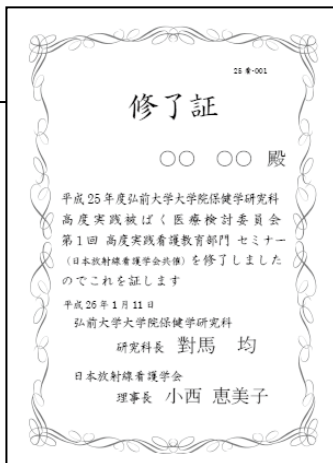 25看-001
修了証
○○ ○○ 殿
平成25年度弘前大学大学院保健学研究科
高度実践被ばく医療検討委員会
第1回 高度実践看護教育部門 セミナー
(日本放射線看護学会共催)を修了しました
のでこれを証します
平成26年1月11日
弘前大学大学院保健学研究科
研究科長 對馬 均
日本放射線看護学会
理事長 小西 恵美子